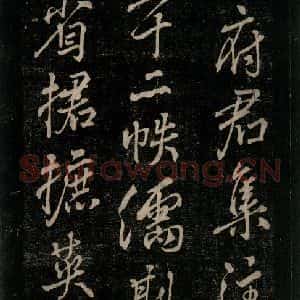 府君集注
二帙儒
省捃摭英
Shufawang.CN